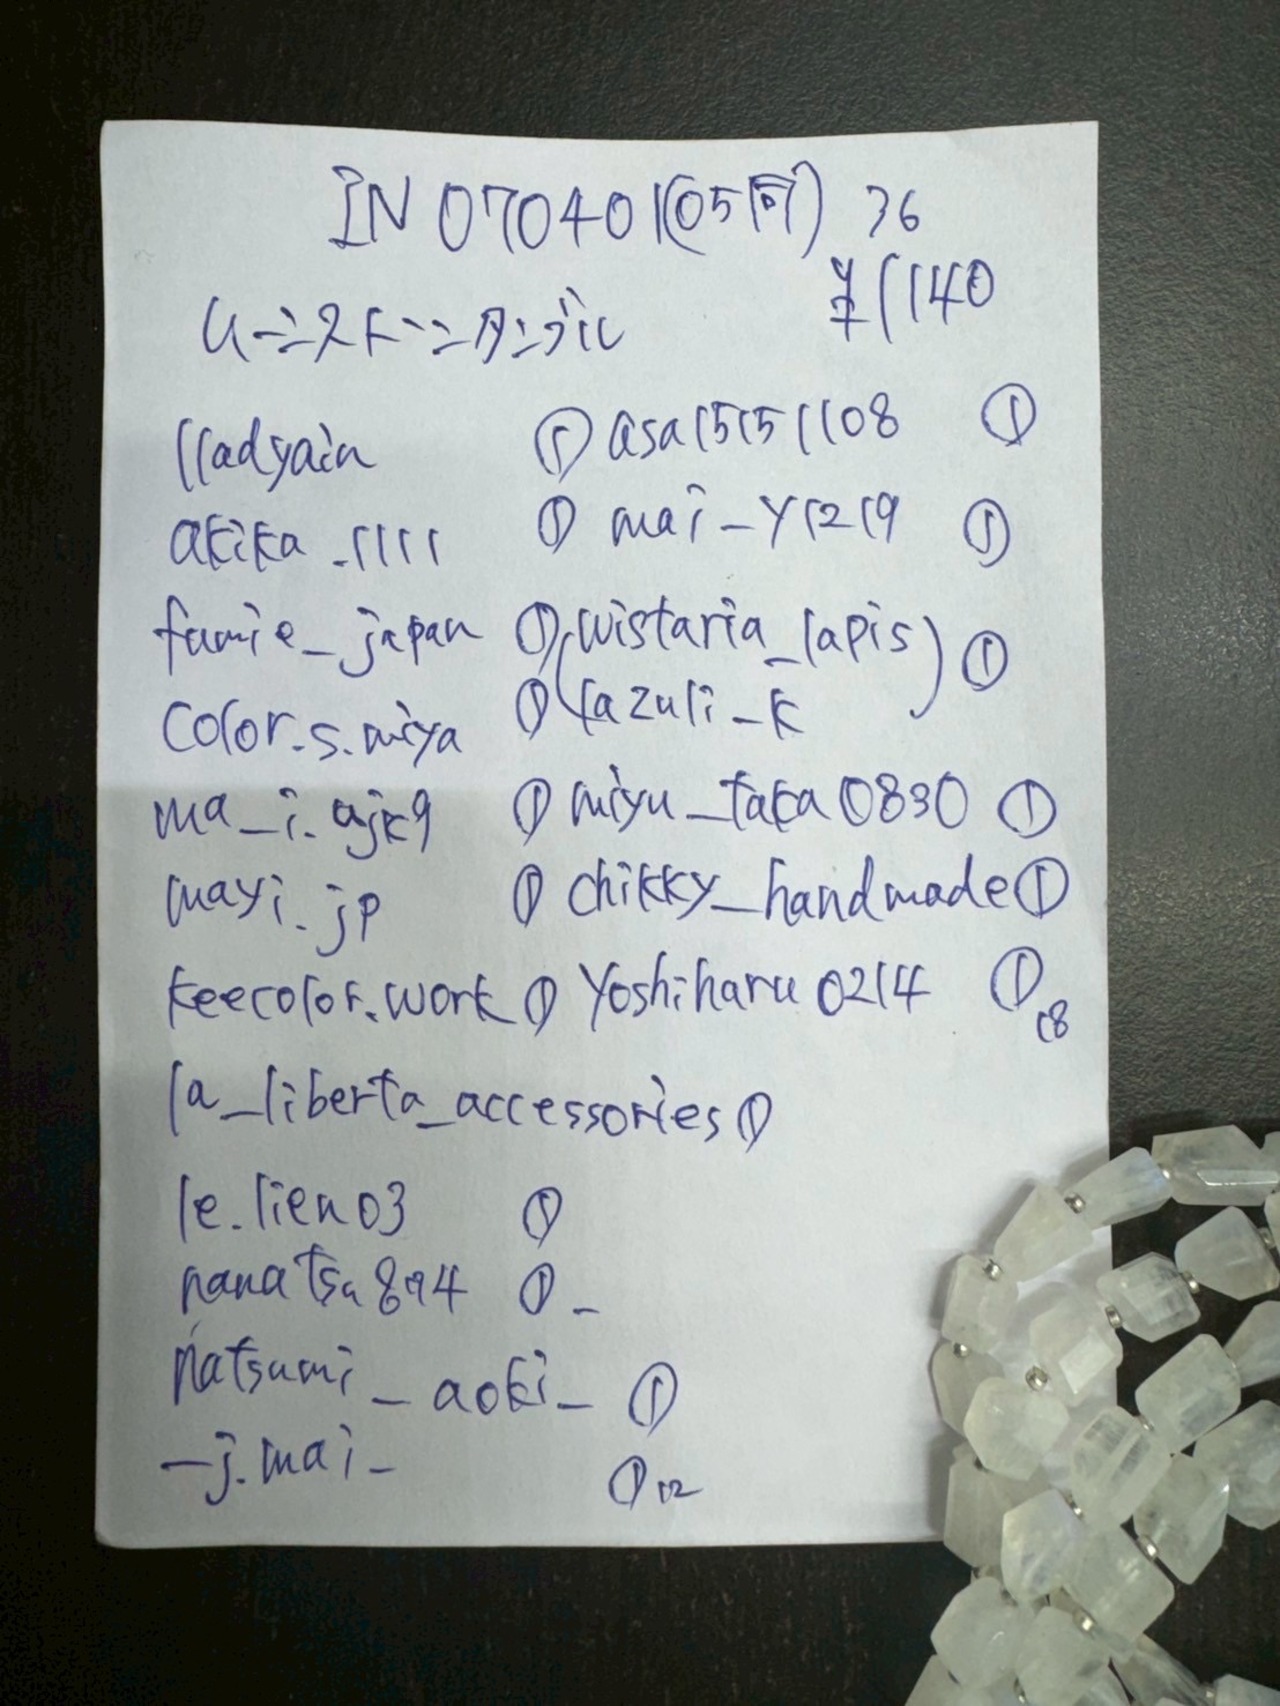 IN070401(05同) 36
¥1140
ムーンストーンタンブル
lladyain ①
akika_1111 ①
fumie_japan ①
color.s.miya ①
ma_i.ajk9 ①
mayi.jp ①
keecolor.work ①
la_liberta_accessories ①
le.lien03 ①
nanatsu894 ①_
natsumi_aoki_ ①
_j.mai_ ① 12
asa15151108 ①
mai_y1219 ①
(wistaria_lapis
lazuli_k) ①
miyu_taka0830 ①
chikky_handmade ①
Yoshiharu0214 ① 18